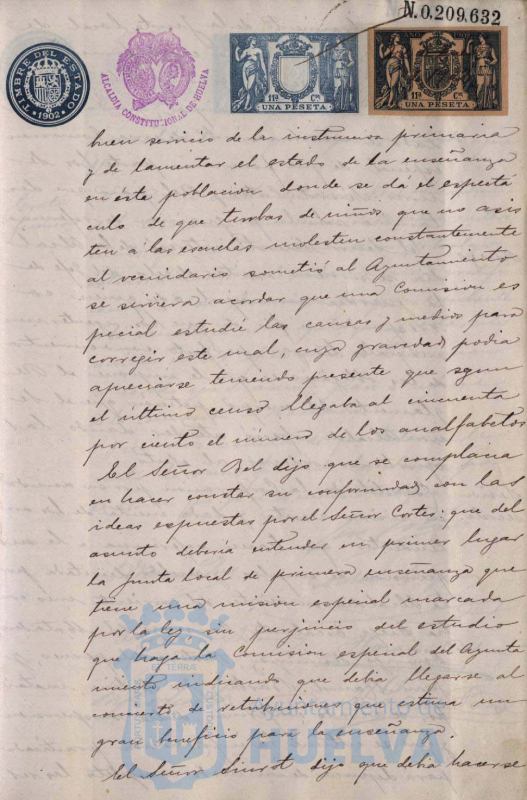 N.0.209.632
TIMBRE DEL ESTADO
1902
ALCALDIA CONSTITUCIONAL DE HUELVA
11ª Cª
UNA PESETA
11ª Cª
UNA PESETA
buen servicio de la instruccion primaria
y de lamentar el estado de la enseñanza
en ésta poblacion donde se dá el espectá
culo de que turbas de niños que no asis
ten á las escuelas molesten constantemente
al vecindario sometió al Ayuntamiento
se sirviera acordar que una Comision es
pecial estudie las causas y medios para
corregir este mal, cuya gravedad podia
apreciarse teniendo presente que segun
el último censo llegaba al cincuenta
por ciento el número de los analfabetos
El Señor Bel dijo que se complacia
en hacer constar su conformidad con las
ideas espuestas por el Señor Cortes: que del
asunto debería entender en primer lugar
la Junta local de primera enseñanza que
tiene una mision especial marcada
por la ley sin perjuicio del estudio
que haga la Comision especial del Ayunta
miento indicando que debia llegarse al
concierto de retribuciones que estima un
gran beneficio para la enseñanza.
El Señor Siurot dijo que debia hacerse
Ayuntamiento de
HUELVA